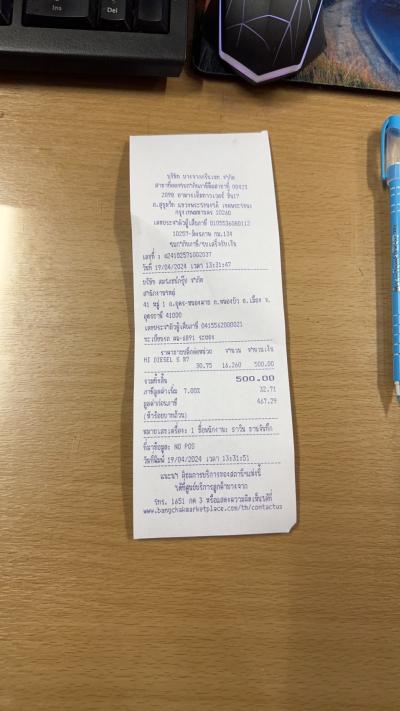 Ins
Del
บริษัท บางจากกรีนเนท จำกัด
สาขาที่ออกใบกำกับภาษีคือสาขาที่ 00425
2098 อาคารเอ็มทาวเวอร์ ชั้น7
ถ.สุขุมวิท แขวงพระโขนงใต้ เขตพระโขนง
กรุงเทพมหานคร 10260
เลขประจำตัวผู้เสียภาษี 0105536080112
10257-มิตรภาพ กม.134
ใบกำกับภาษี/ใบเสร็จรับเงิน
เลขที่ : 424102571002037
วันที่ 19/04/2024 เวลา 13:31:47
บริษัท จำกัด
สำนักงานใหญ่
41 หมู่ 1 ถ.อุดร-หนองคาย ต.หนองบัว อ.เมือง จ.
อุดรธานี 41000
เลขประจำตัวผู้เสียภาษี 0415562000021
ทะเบียนรถ 6891 ระยอง
ราคาขายปลีกต่อหน่วย จำนวน จำนวนเงิน
HI DIESEL S B7
30.75 16.260 500.00
รวมทั้งสิ้น 500.00
ภาษีมูลค่าเพิ่ม 7.00% 32.71
มูลค่าก่อนภาษี 467.29
(ห้าร้อยบาทถ้วน)
หมายเลขเครื่อง: 1 ชื่อพนักงาน: ราวิน
ที่มาข้อมูล: NO POS
วันที่พิมพ์ 19/04/2024 เวลา 13:31:51
แนะนำ ติชมการบริการของสถานีฯแห่งนี้
ได้ที่ศูนย์บริการลูกค้าบางจาก
โทร. 1651 กด 3 หรือแสดงความคิดเห็นได้ที่
www.bangchakmarketplace.com/th/contactus